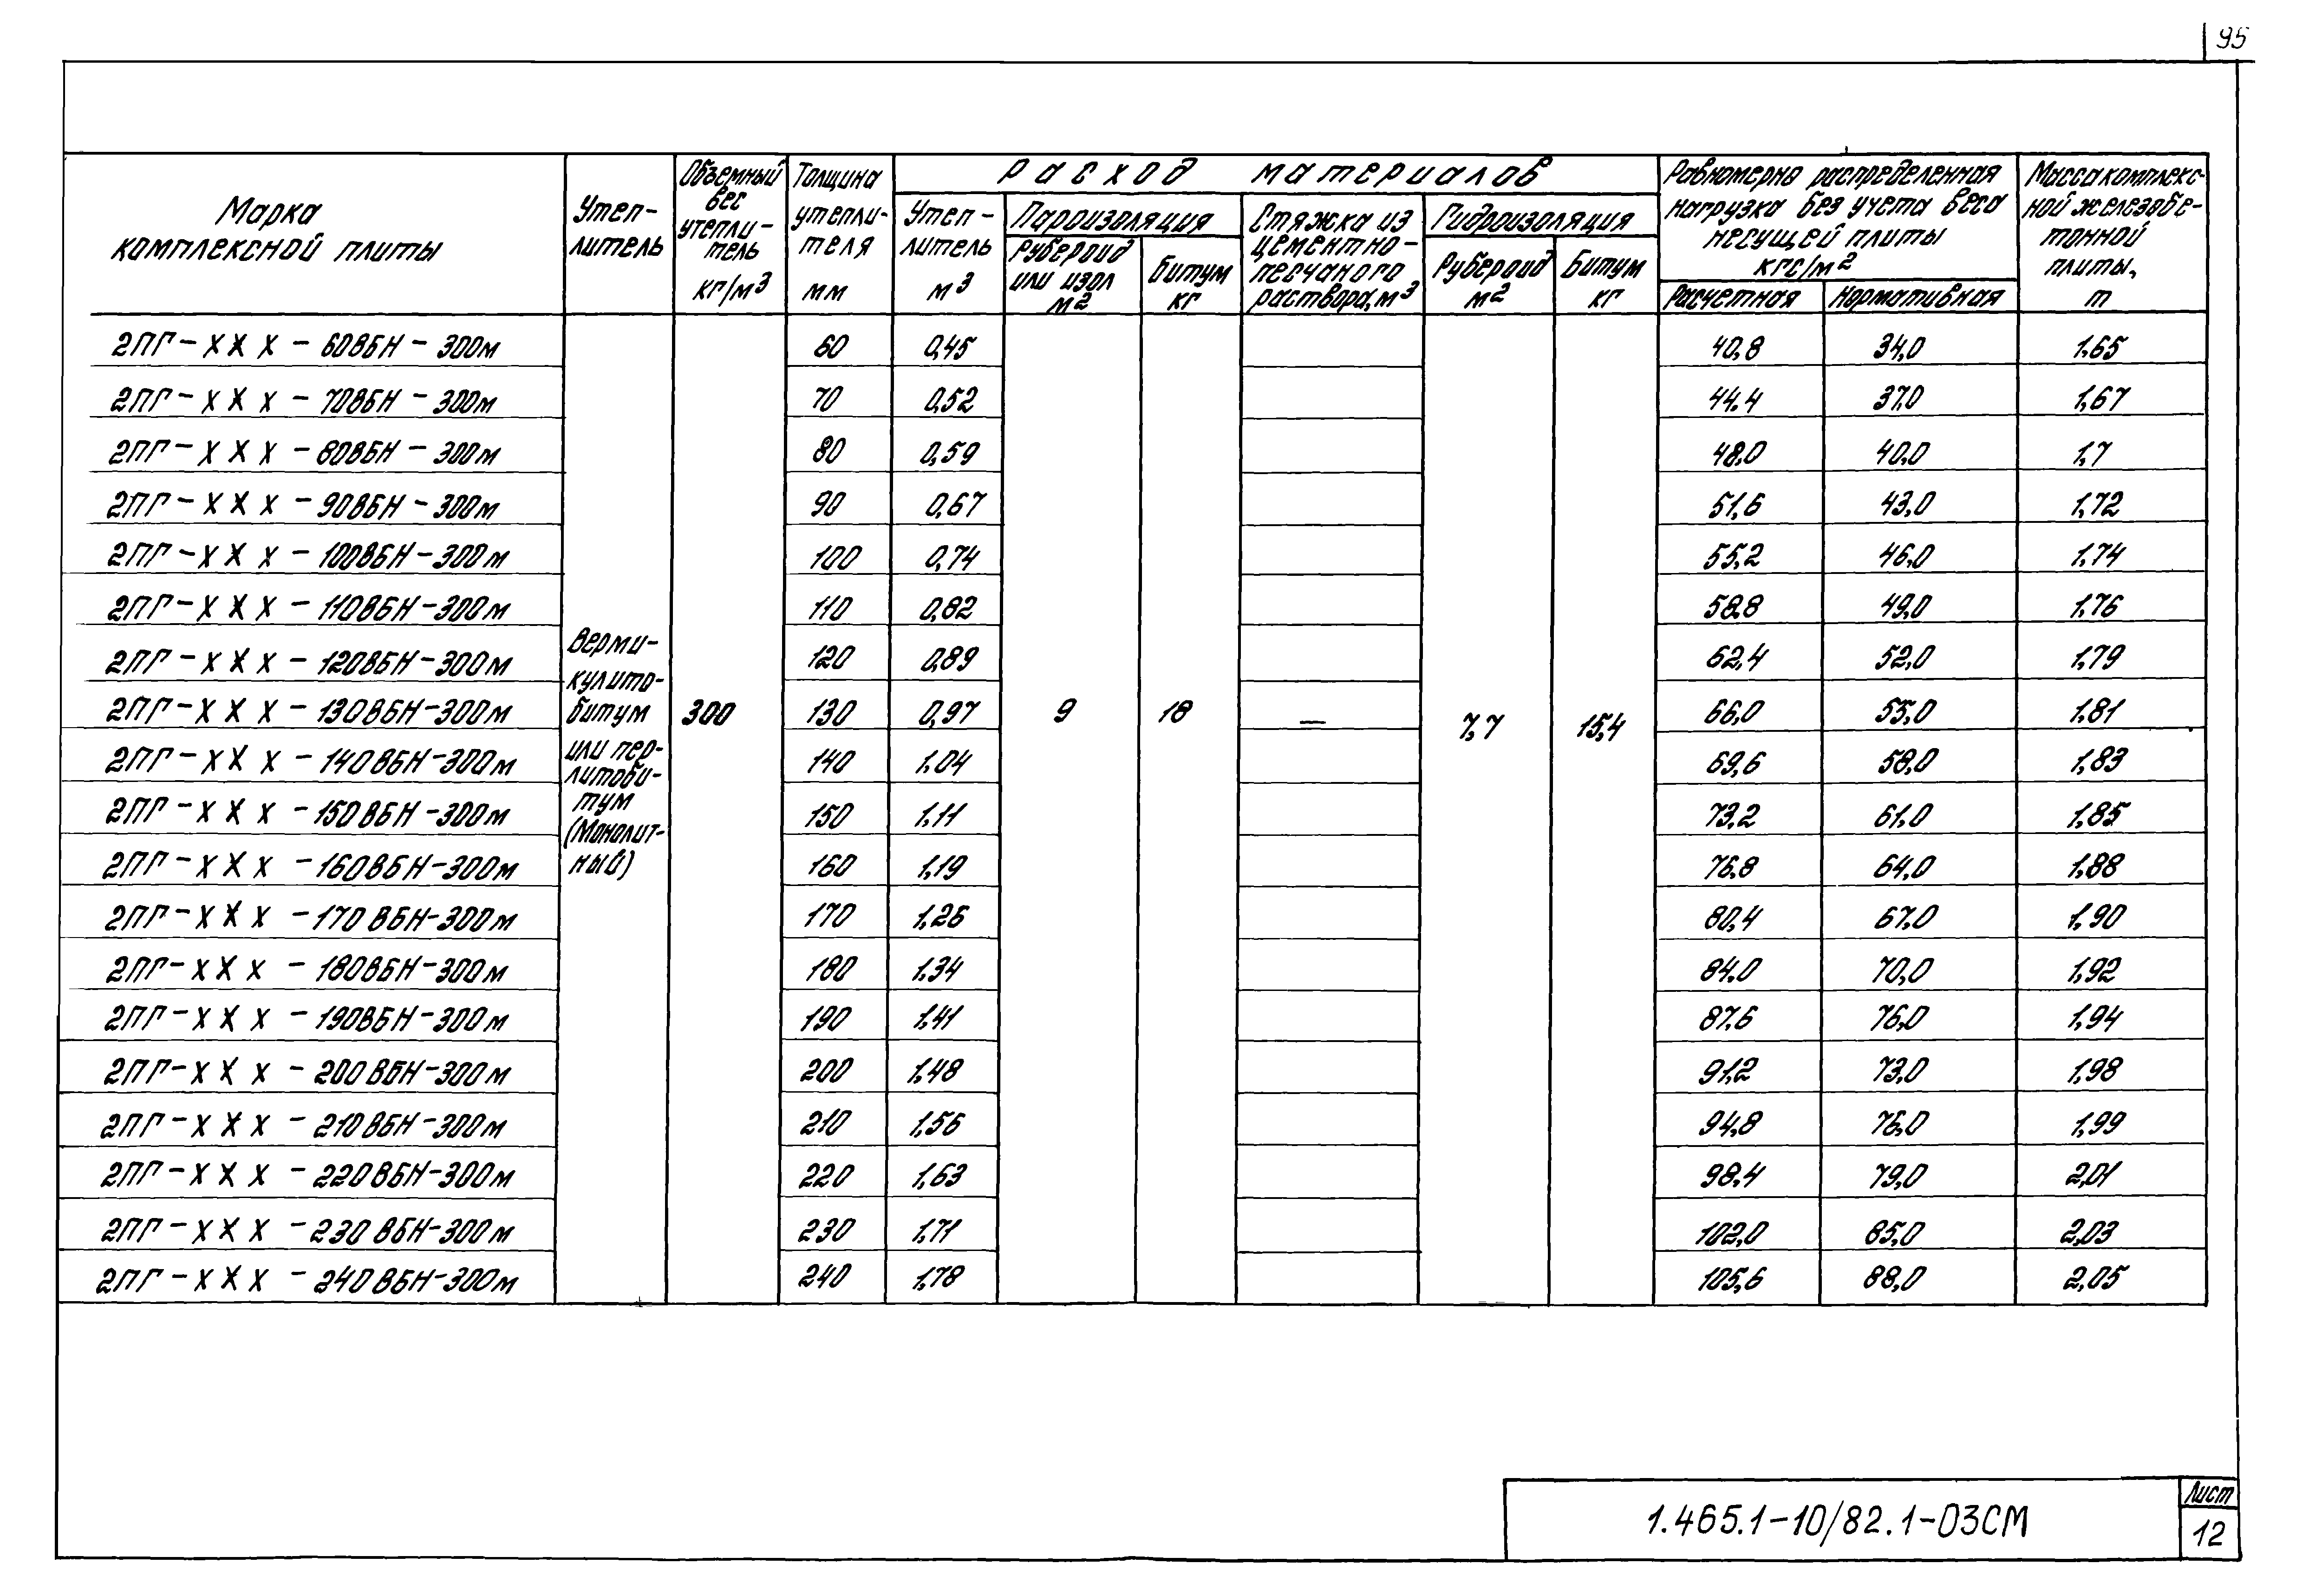 95
Марка комплексной плиты
Утеп-литель
Объемный вес утепли-тель кг/м³
Толщина утепли-теля мм
Расход материалов
Утеп-литель м³
Пароизоляция
Рубероид или изол м²
Битум кг
Стяжка из цементно-песчаного раствора, м³
Гидроизоляция
Рубероид м²
Битум кг
Равномерно распределенная нагрузка без учета веса несущей плиты кгс/м²
Расчетная
Нормативная
Масса комплекс-ной железобе-тонной плиты, т
2ПГ-ХХХ-60ВБН-300м 60 0,45 40,8 34,0 1,65
2ПГ-ХХХ-70ВБН-300м 70 0,52 44.4 37,0 1,67
2ПГ-ХХХ-80ВБН-300м 80 0,59 48,0 40,0 1,7
2ПГ-ХХХ-90ВБН-300м 90 0,67 51,6 43,0 1,72
2ПГ-ХХХ-100ВБН-300м 100 0,74 55,2 46,0 1,74
2ПГ-ХХХ-110ВБН-300м 110 0,82 58,8 49,0 1,76
2ПГ-ХХХ-120ВБН-300м 120 0,89 62,4 52,0 1,79
Верми-
кулито-
битум
или пер-
литоби-
тум
(Монолит-
ный)
2ПГ-ХХХ-130ВБН-300м 300 130 0,97 9 18 — 7,7 15,4 66,0 55,0 1,81
2ПГ-ХХХ-140ВБН-300м 140 1,04 69,6 58,0 1,83
2ПГ-ХХХ-150ВБН-300м 150 1,11 73,2 61,0 1,85
2ПГ-ХХХ-160ВБН-300м 160 1,19 76,8 64,0 1,88
2ПГ-ХХХ-170ВБН-300м 170 1,26 80,4 67,0 1,90
2ПГ-ХХХ-180ВБН-300м 180 1,34 84,0 70,0 1,92
2ПГ-ХХХ-190ВБН-300м 190 1,41 87,6 76,0 1,94
2ПГ-ХХХ-200ВБН-300м 200 1,48 91,2 73,0 1,98
2ПГ-ХХХ-210ВБН-300м 210 1,56 94,8 76,0 1,99
2ПГ-ХХХ-220ВБН-300м 220 1,63 98,4 79,0 2,01
2ПГ-ХХХ-230ВБН-300м 230 1,71 102,0 85,0 2,03
2ПГ-ХХХ-240ВБН-300м 240 1,78 105,6 88,0 2,05
1.465.1-10/82.1-03СМ
Лист
12